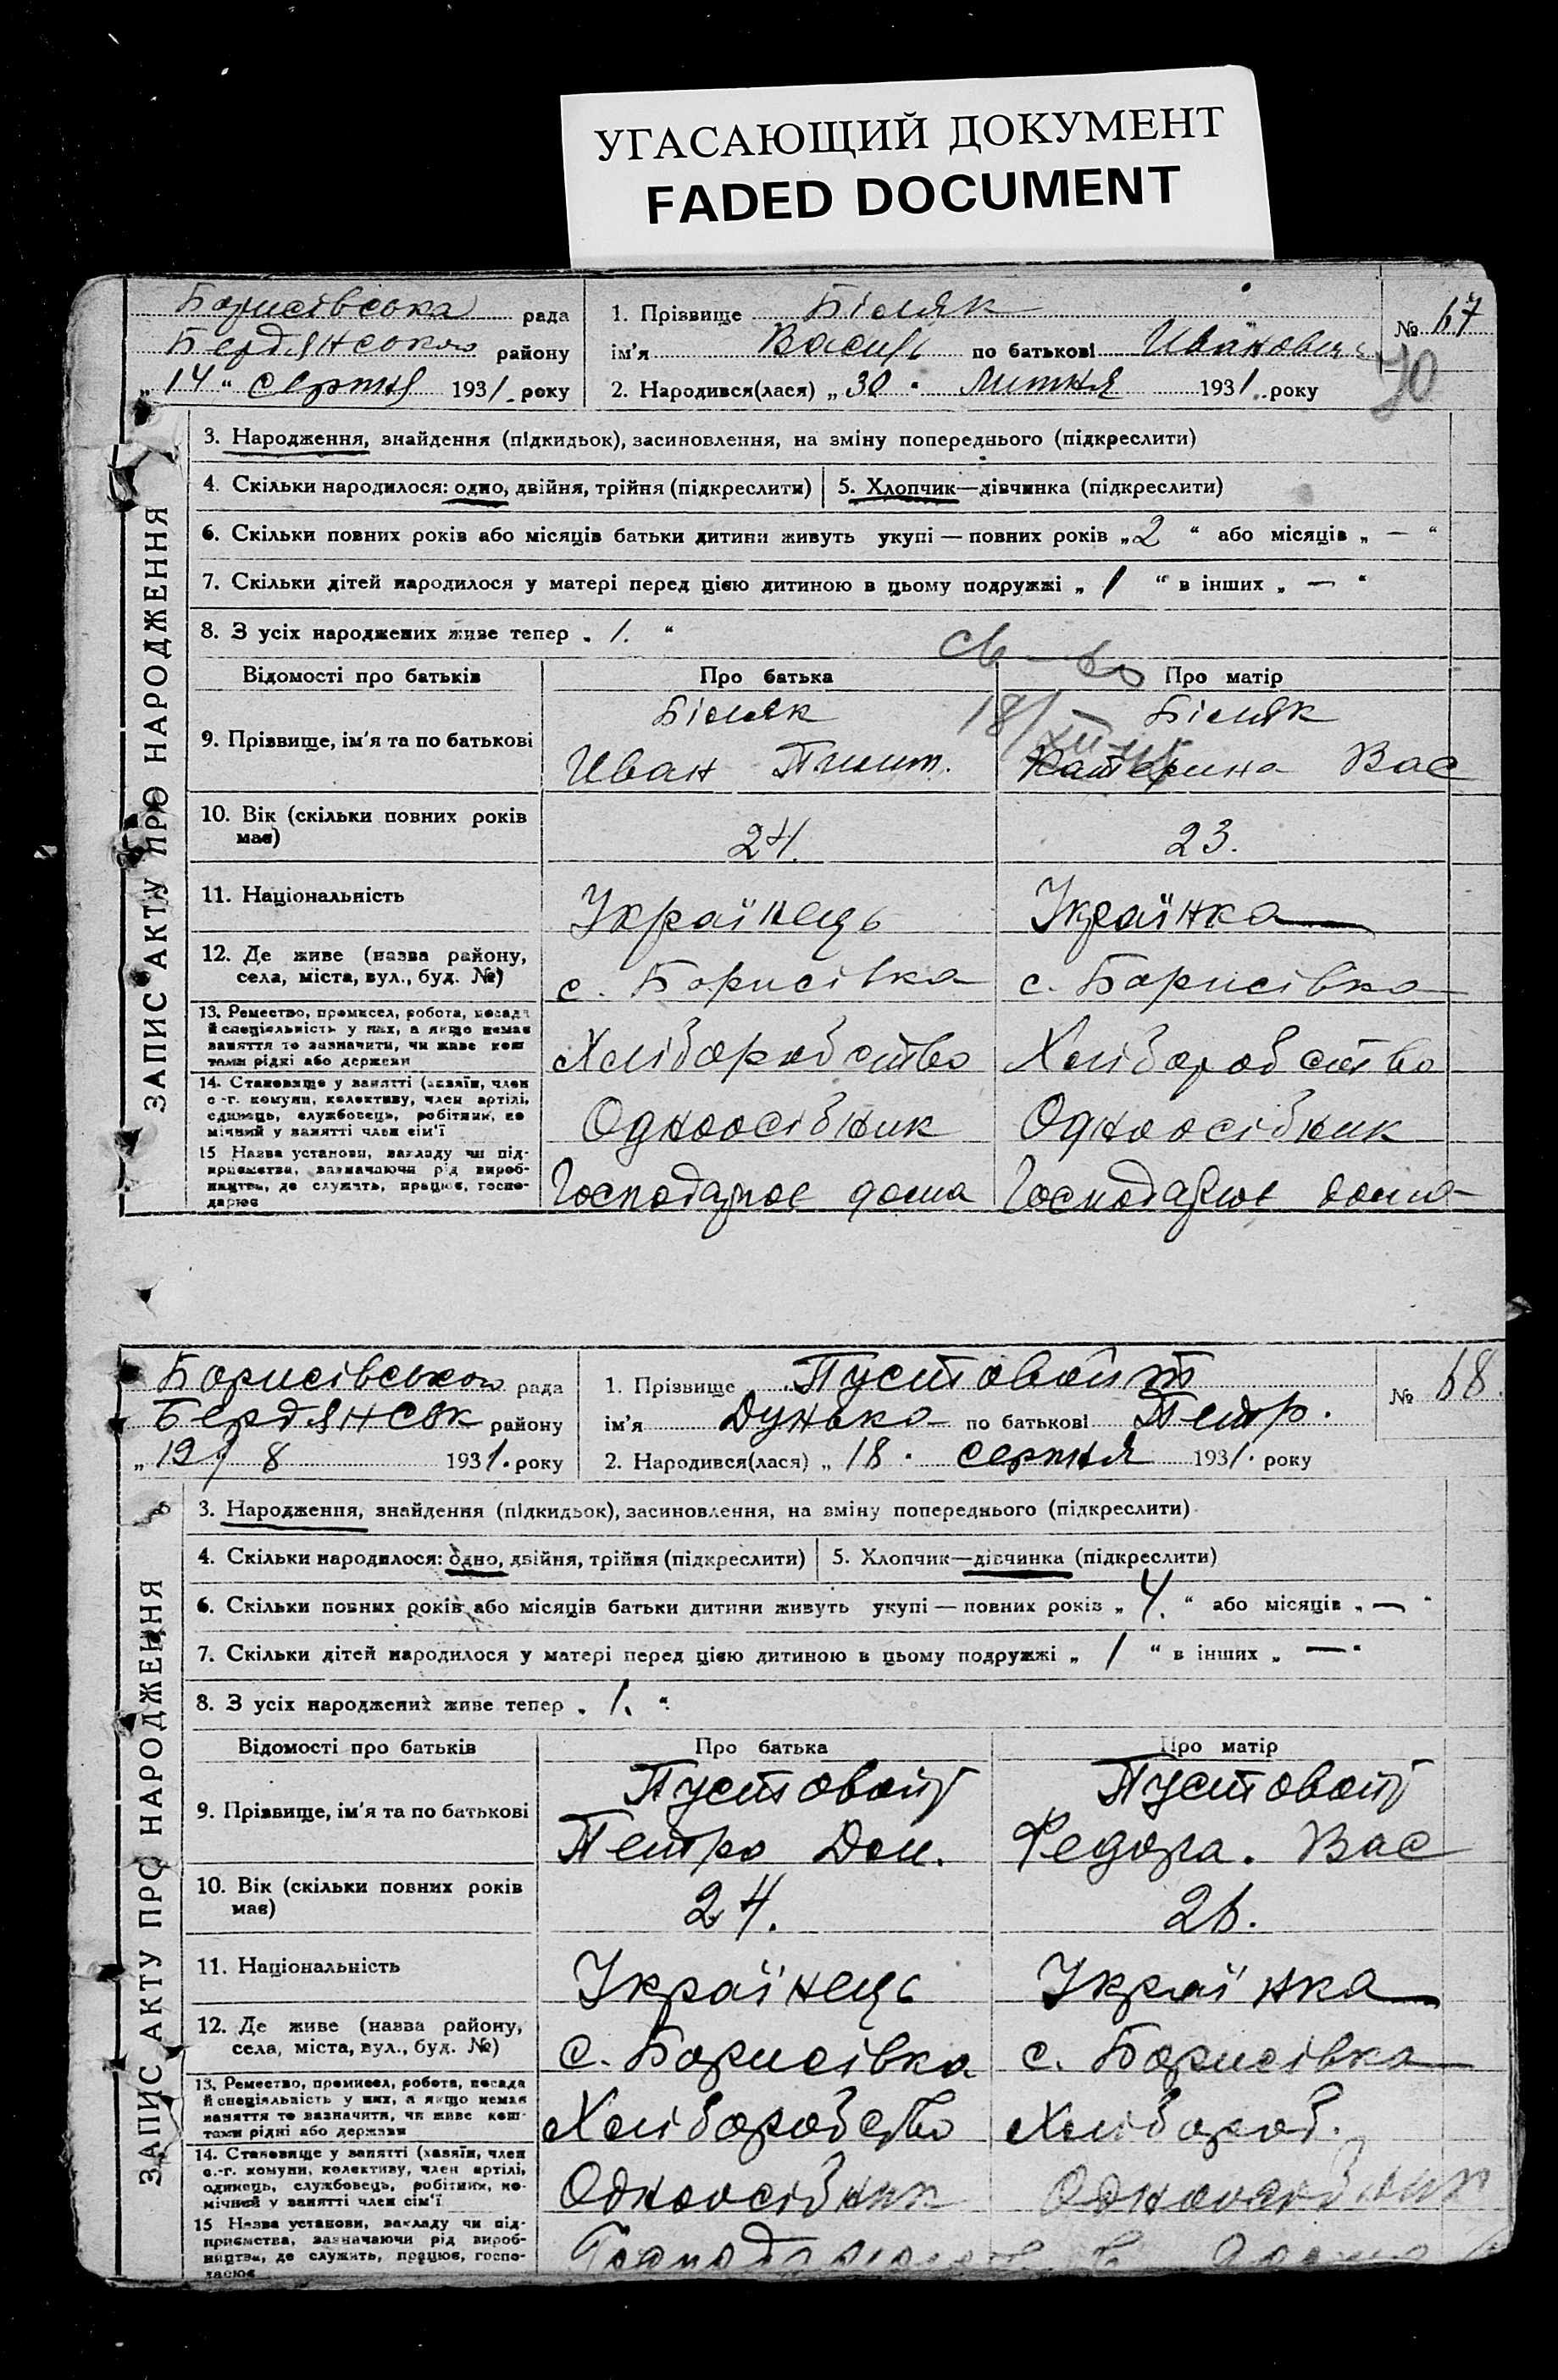 УГАСАЮЩИЙ ДОКУМЕНТ
FADED DOCUMENT
Борисівська рада
Бердянського району
„14“ серпня 1931. року
1. Прізвище Біляк
ім'я Василь по батькові Иванович
2. Народився(лася) „30. липня 1931. року
№ 67
70
ЗАПИС АКТУ ПРО НАРОДЖЕННЯ
3. Народження, знайдення (підкидьок), засиновлення, на зміну попереднього (підкреслити)
4. Скільки народилося: одно, двійня, трійня (підкреслити) 5. Хлопчик—дівчинка (підкреслити)
6. Скільки повних років або місяців батьки дитини живуть укупі — повних років „2“ або місяців „—“
7. Скільки дітей народилося у матері перед цією дитиною в цьому подружжі „1“ в інших „—“
8. З усіх народжених живе тепер „1.“
св-во
18/
Відомості про батьків Про батька Про матір
9. Прізвище, ім'я та по батькові
Біляк Біляк
Иван Пилип. Катерина Вас
10. Вік (скільки повних років має)
24. 23.
11. Національність
Українець Українка
12. Де живе (назва району, села, міста, вул., буд. №)
с. Борисівка с. Борисівка
13. Ремество, промисел, робота, посада й спеціяльність у них, а якщо немає заняття то зазначити, чи живе кош тами рідні або держави
Хліборобство Хліборобство
14. Становище у занятті (хазяїн, член с.-г. комуни, колективу, член артілі, одинець, службовець, робітник, по мічний у занятті член сім'ї
Одноосібник Одноосібник
15 Назва установи, закладу чи під- приємства, зазначаючи рід вироб- ництва, де служить, працює, госпо- дарює
Господарює дома Господарює дома
Борисівською рада
Бердянськ району
„19/ 8 1931. року
1. Прізвище Пустовойт
ім'я Дунька по батькові Петр.
2. Народився(лася) „18. серпня 1931. року
№ 68.
ЗАПИС АКТУ ПРО НАРОДЖЕННЯ
3. Народження, знайдення (підкидьок), засиновлення, на зміну попереднього (підкреслити)
4. Скільки народилося: одно, двійня, трійня (підкреслити) 5. Хлопчик—дівчинка (підкреслити)
6. Скільки повних років або місяців батьки дитини живуть укупі — повних років „4.“ або місяців „—“
7. Скільки дітей народилося у матері перед цією дитиною в цьому подружжі „1“ в інших „—“
8. З усіх народжених живе тепер „1.“
Відомості про батьків Про батька Про матір
9. Прізвище, ім'я та по батькові
Пустовойт Пустовойт
Петро Дем. Федора. Вас
10. Вік (скільки повних років має)
24. 26.
11. Національність
Українець Українка
12. Де живе (назва району, села, міста, вул., буд. №)
с. Борисівка с. Борисівка
13. Ремество, промисел, робота, посада й спеціяльність у них, а якщо немає заняття то зазначити, чи живе кош- тами рідні або держави
Хліборобство Хлібороб.
14. Становище у занятті (хазяїн, член с.-г. комуни, колективу, член артілі, одинець, службовець, робітник, по- мічний у занятті член сім'ї
Одноосібник Одноосібник
15 Назва установи, закладу чи під- приємства, зазначаючи рід вироб- ництва, де служить, працює, госпо- дарює